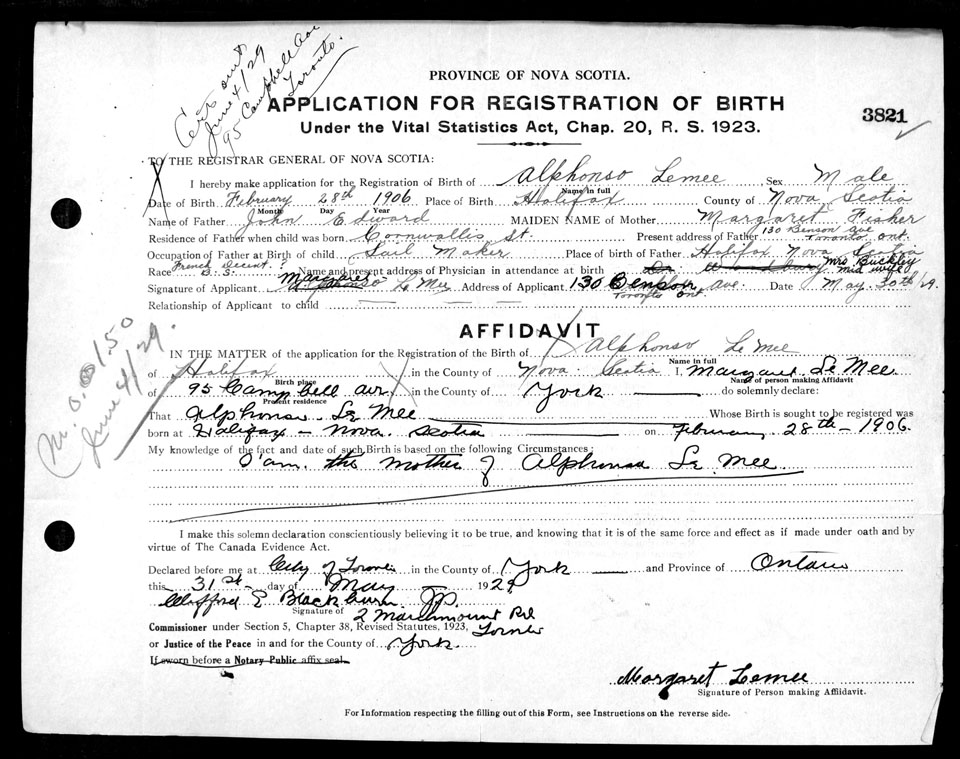 Cert out
June 4/29
95 Campbell Ave
Toronto.
PROVINCE OF NOVA SCOTIA.
APPLICATION FOR REGISTRATION OF BIRTH
Under the Vital Statistics Act, Chap. 20, R. S. 1923.
3821
TO THE REGISTRAR GENERAL OF NOVA SCOTIA:
I hereby make application for the Registration of Birth of Alphonso Lemee Sex Male
Name in full
Date of Birth February 28th 1906 Place of Birth Halifax County of Nova Scotia
Month Day Year
Name of Father John Edward MAIDEN NAME of Mother Margaret Fisher
Residence of Father when child was born Cornwallis St. Present address of Father 130 Benson Ave Toronto ont.
Occupation of Father at Birth of child Sail Maker Place of birth of Father Halifax Nova Scotia
Race French Decent? Name and present address of Physician in attendance at birth Mrs Buckley mid wife
Signature of Applicant Margaret Le Mee Address of Applicant 130 Benson Ave. Toronto Ont. Date May 30th/29.
Relationship of Applicant to child
AFFIDAVIT
IN THE MATTER of the application for the Registration of the Birth of Alphonso Le Mee
Name in full
of Halifax in the County of Nova Scotia I, Margaret Le Mee
Birth place Name of person making Affidavit
of 95 Campbell ave in the County of York do solemnly declare:
Present residence
That Alphonso Le Mee Whose Birth is sought to be registered was
born at Halifax – Nova. Scotia on February 28th – 1906.
My knowledge of the fact and date of such Birth is based on the following Circumstances
I am the mother of Alphonso Le Mee
M. O. 1.50
June 4/29.
I make this solemn declaration conscientiously believing it to be true, and knowing that it is of the same force and effect as if made under oath and by
virtue of The Canada Evidence Act.
Declared before me at City of Toronto in the County of York and Province of Ontario
this 31st day of May 1929
Clifford E Blackburn J.P.
Signature of 2 Marchmount Rd
Commissioner under Section 5, Chapter 38, Revised Statutes, 1923, Toronto
or Justice of the Peace in and for the County of York.
If sworn before a Notary Public affix seal.
Margaret Lemee
Signature of Person making Affidavit.
For Information respecting the filling out of this Form, see Instructions on the reverse side.